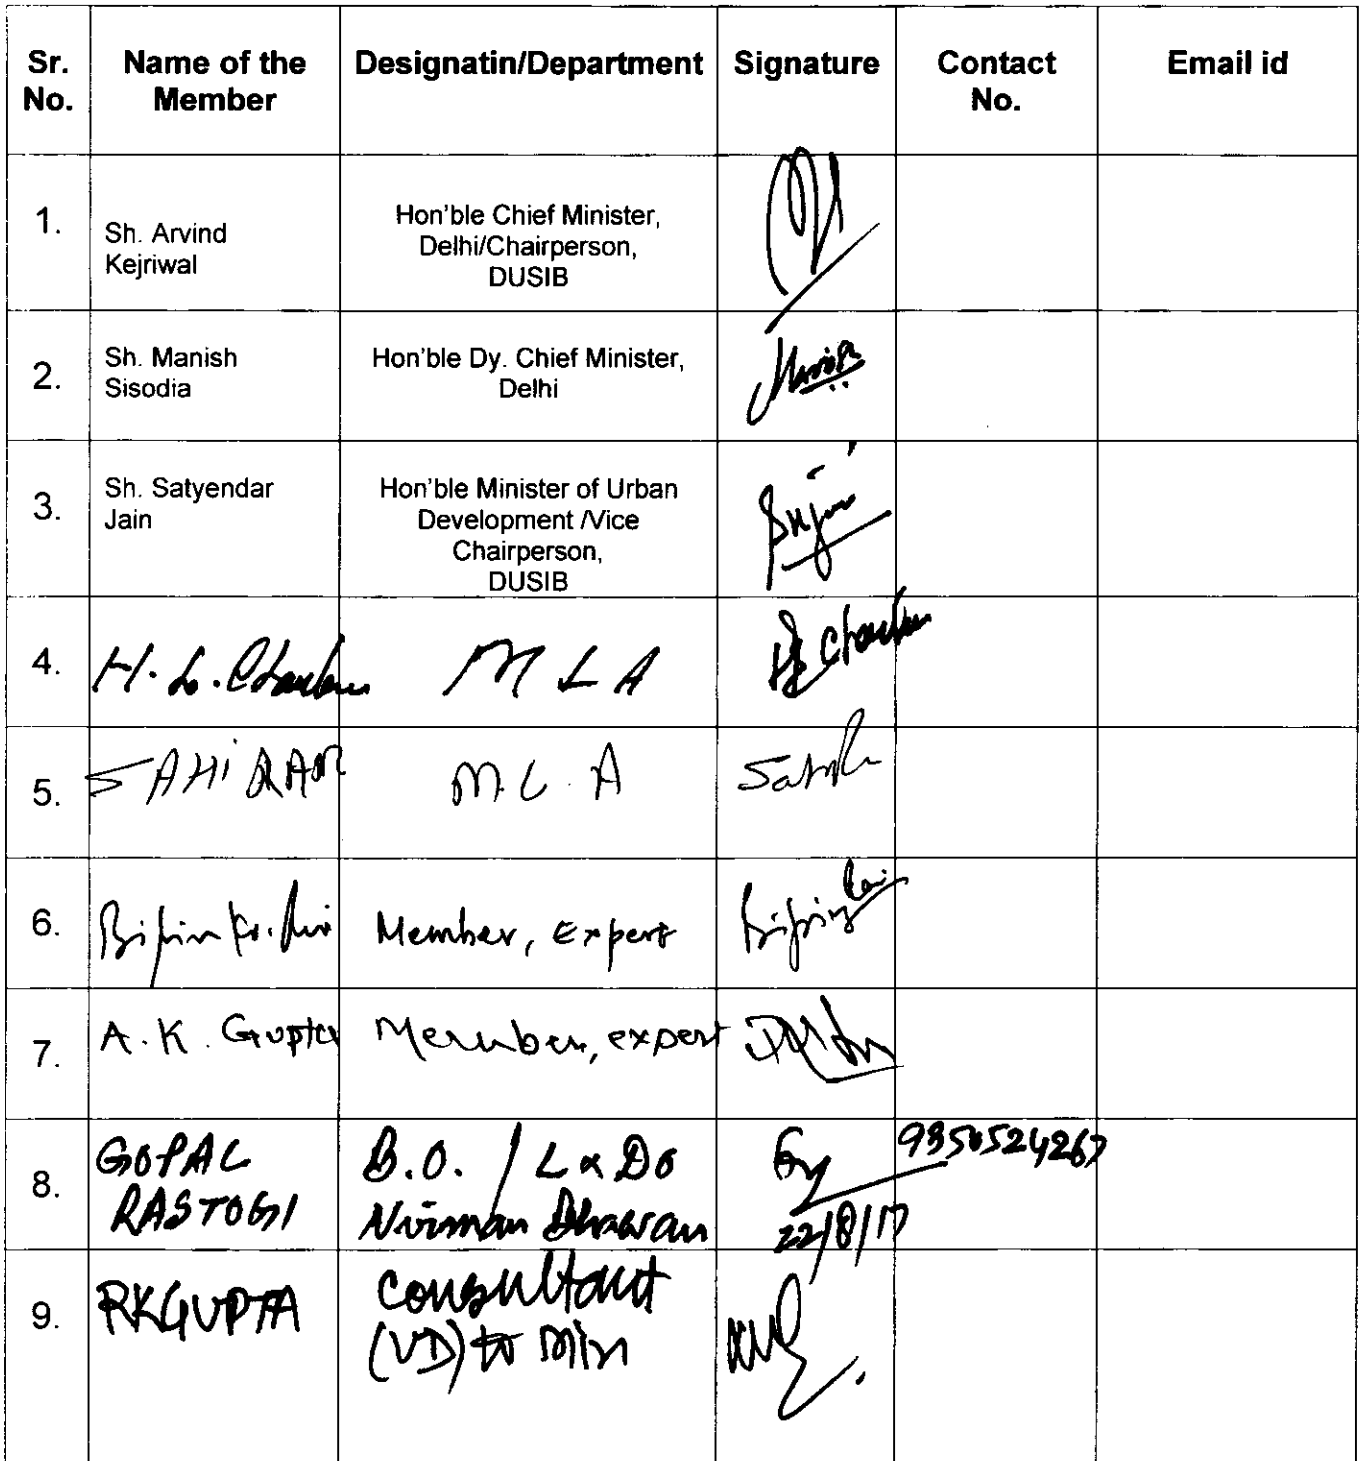 Sr. No.
Name of the Member
Designatin/Department
Signature
Contact No.
Email id
1.
Sh. Arvind
Kejriwal
Hon'ble Chief Minister,
Delhi/Chairperson,
DUSIB
2.
Sh. Manish
Sisodia
Hon'ble Dy. Chief Minister,
Delhi
3.
Sh. Satyendar
Jain
Hon'ble Minister of Urban
Development /Vice
Chairperson,
DUSIB
4.
H. L. Chauhan
MLA
5.
SAHI RAM
M.L.A
6.
Bipin Kr. Rai
Member, Expert
Bipin Rai
7.
A. K. Gupta
Member, expert
8.
GOPAL
RASTOGI
B.O. / L & DO
Nirman Bhawan
9350524267
22/8/17
9.
RK GUPTA
Consultant
(UD) to Min